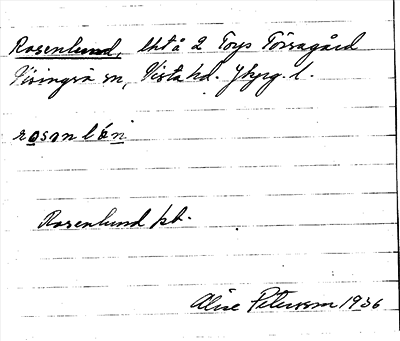 Rosenlund, lht å 2 Torps Törsagård
Visingsö sn, Vista hd. Jkpg. l.
rosənlón
Rosenlund pl.
Alice Petersson 1936